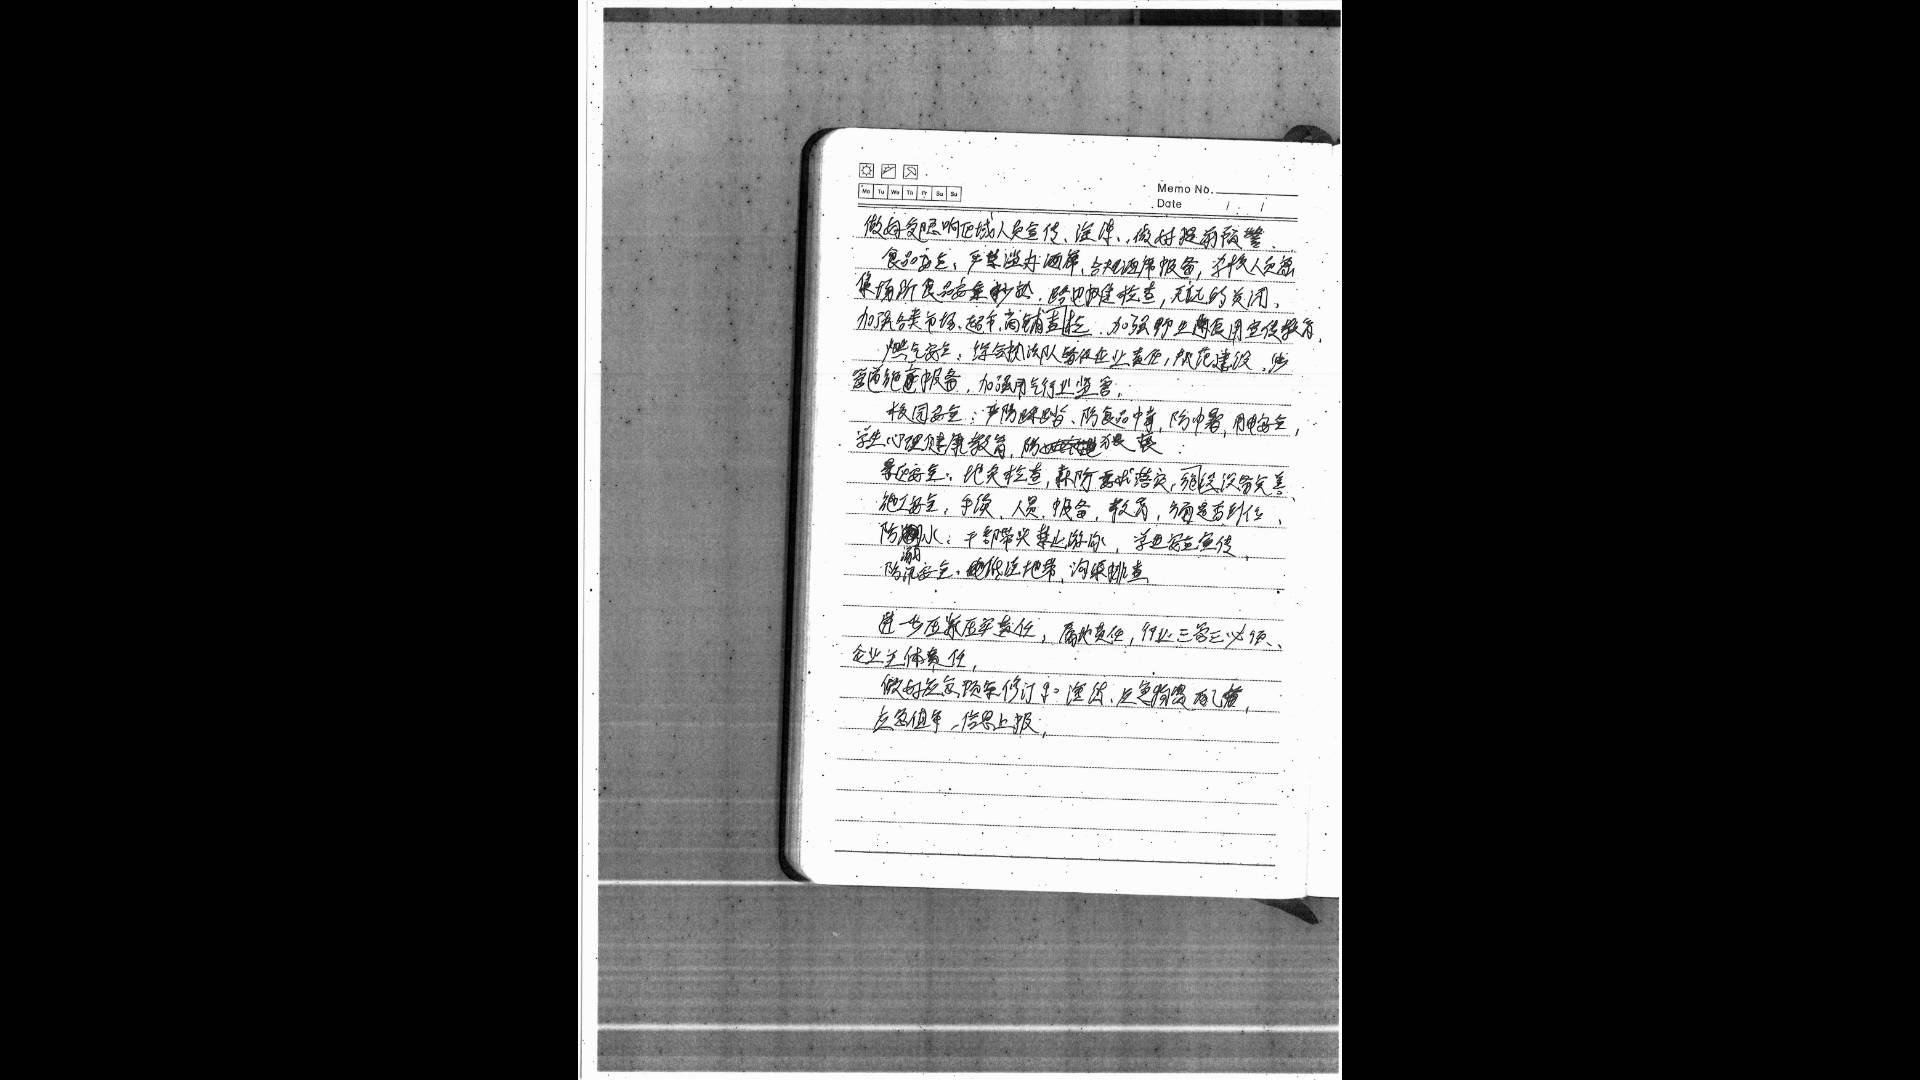 Mo Tu We Th Fr Sa Su
Memo No.
Date / /
做好受影响区域人员宣传、演练、做好提前预警、
食品安全、严禁滥办酒席、合规酒席报备,学校人员密
集场所食品安全,路边摊位检查,无证的关闭、
加强各类市场、超市、商铺查检、加强野生菌食用宣传教育、
燃气安全:综合执法队 企业责任,规范建设、涉
管道施工报备、加强用气行业监管。
校园安全:严防踩踏、防食品中毒,防中暑,用电安全,
学生心理健康教育,防
景区安全:地灾检查,森防要求落实,设备完善、
施工安全,手续、人员、报备、教育,方面是否到位、
防溺水:干部带头禁止游泳,学生安全宣传、
溺
防汛安全、低洼地带、沟渠排查
进一步压紧压实责任,属地责任,行业三管三必须、
企业主体责任,
做好应急预案修订和演练、应急物资储备,
应急值守、信息上报,